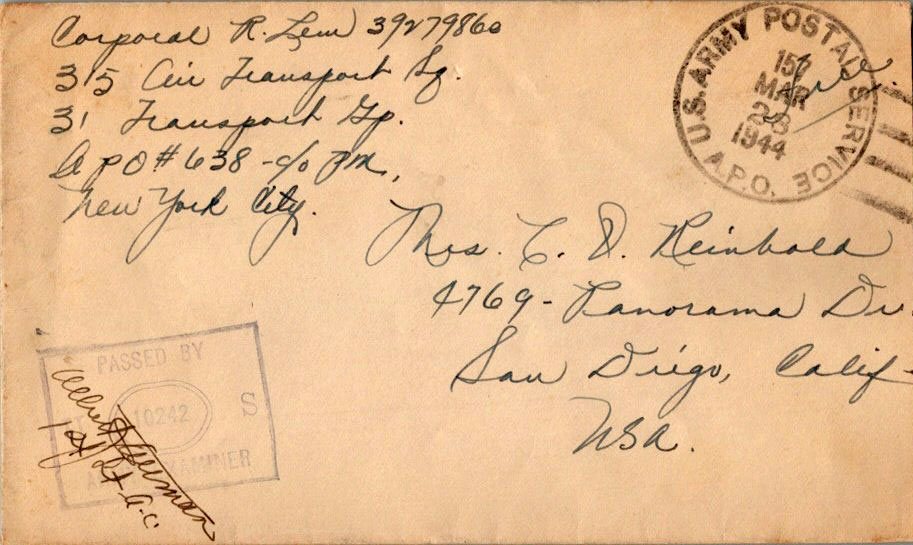 Corporal R. Lew 39279860
315 Air Transport Sq.
31 Transport Gp.
A P O # 638 - c/o P.M.,
New York City.
U.S. ARMY POSTAL SERVICE
A.P.O.
157
MAR
28
1944
Free
Mrs. C. D. Reinbold
4769 - Panorama Dr.
San Diego, Calif -
USA.
PASSED BY
10242
S
ARMY EXAMINER
1st Lt. A.C.